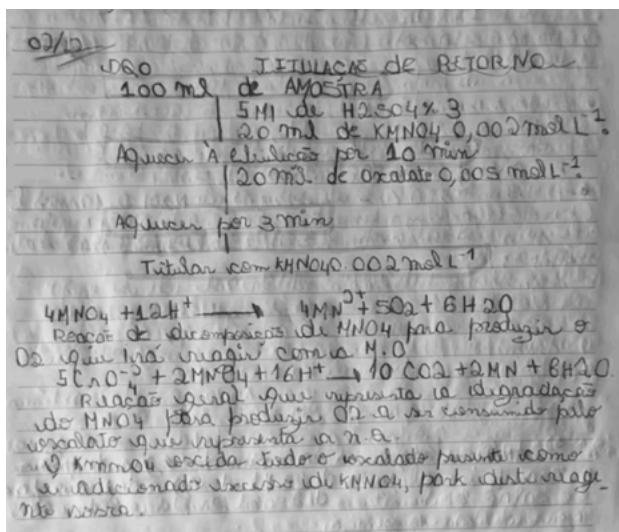 02/12
DQO TITULAÇÃO de RETORNO
100 ml de AMOSTRA
5 Ml de H2SO4 % 3
20 ml de KMNO4 0,002 mol L⁻¹.
Aquecer À ebulição por 10 min
20 ml de oxalate 0,005 mol L⁻¹.
Aquecer por 3 min
Titular com KMNO4 0.002 mol L⁻¹
4MNO4 + 12H⁺ → 4MN²⁺ + 5O2 + 6H2O
Reação de decomposição de MNO4 para produzir o
O2 que irá reagir com a M.O
+ 2MNO4 + 16H⁺ → 10 CO2 + 2MN + 8H2O
Reação geral que representa a degradação
do MNO4 para produzir O2 a ser consumido pelo
oxalato que representa a
KmnO4 oxida todo o oxalado presente como
é adicionado excesso de KMNO4, parte deste reage
nte sobra.